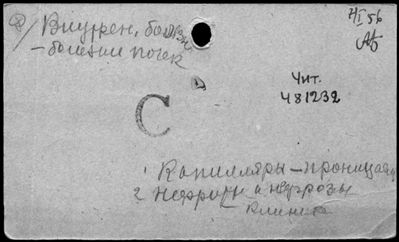 Ж I 56
2/ Внутрен. болезни
– болезни почек
Чит.
481232
С
1 Капилляры – проницаем
2 Нефриты и нефрозы
Клиника